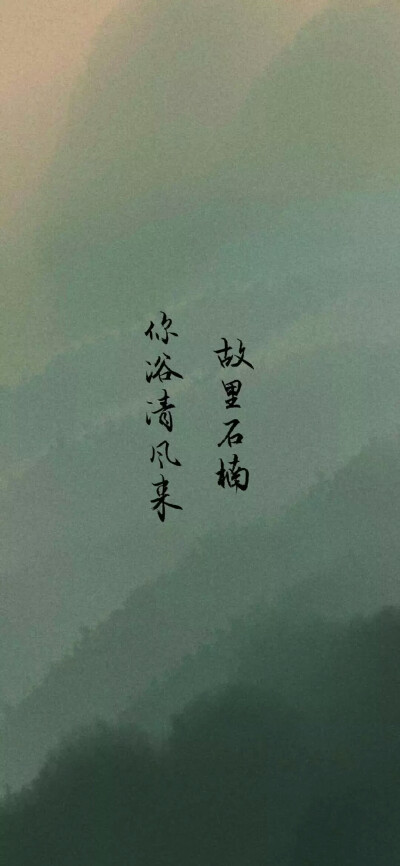 故里石楠
你浴清风来